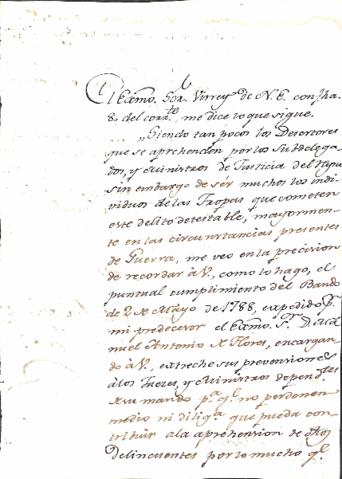 El Exmo. Sor. Virrey de N. E. con fha.
8 del corrte. me dice lo que sigue.
„Siendo tan pocos los Desertores
que se aprehenden por los Subdelega-
dos, y Ministros de Justicia del
sin embargo de ser muchos los indi-
viduos de las Tropas que cometen
este delito detestable, mayormen-
te en las circunstancias presentes
de Guerra, me veo en la precision
de recordar à V, como lo hago, el
puntual cumplimiento del Bando
de 2 de Mayo de 1788, expedido pr.
mi predecesor el Exmo. Sr. Dn. Ma-
nuel Antonio de Flores, encargan-
do à V, estreche sus prevenciones
à los Jueces, y Ministros dependtes.
de su mando pa. qe. no perdonen
medio ni diliga. que pueda con-
tribuir a la aprehension de dhos
Delinquentes por lo mucho qe.